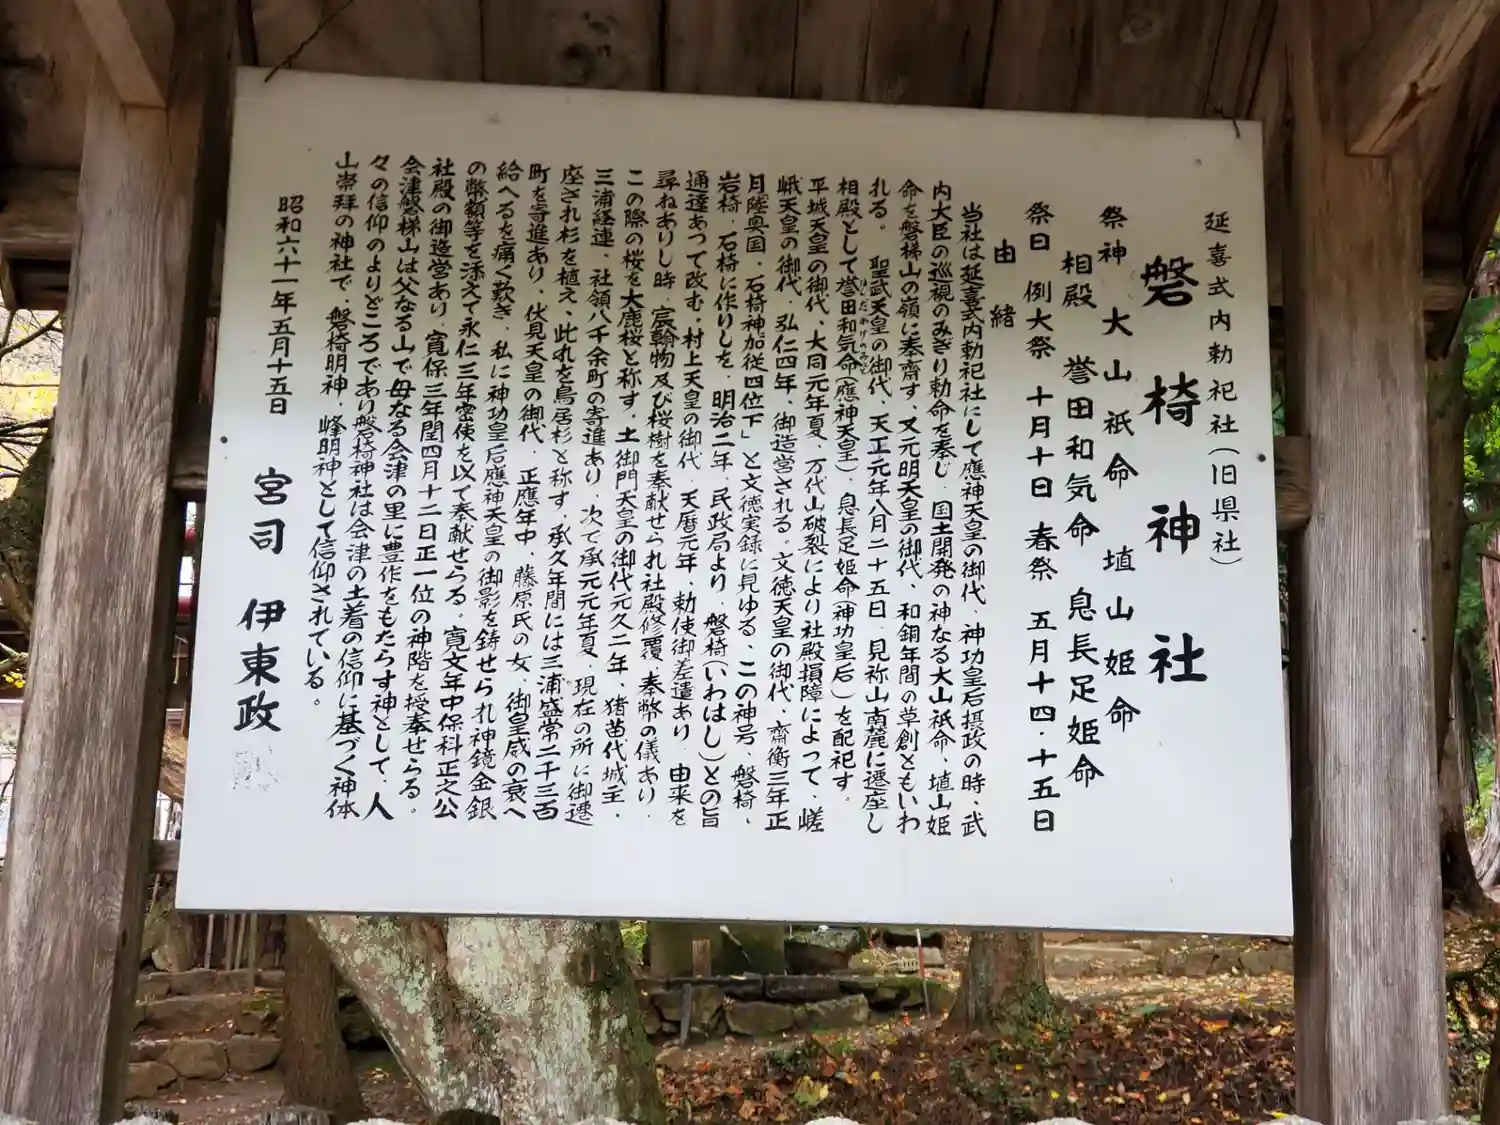 延喜式内勅祀社(旧県社)
磐椅神社
祭神 大山祇命 埴山姫命
相殿 誉田和気命 息長足姫命
祭日 例大祭 十月十日 春祭 五月十四・十五日
由緒
当社は延喜式内勅祀社にして應神天皇の御代、神功皇后摂政の時、武
内大臣の巡視のみぎり勅命を奉じ、国土開発の神なる大山祇命、埴山姫
命を磐梯山の嶺に奉齋す、又元明天皇の御代、和銅年間の草創ともいわ
れる。 聖武天皇の御代、天正元年八月二十五日、見祢山南麓に遷座し
相殿として誉田和気命(應神天皇)、息長足姫命(神功皇后)を配祀す。
平城天皇の御代、大同元年夏、万代山破裂により社殿損障によって、嵯
峨天皇の御代、弘仁四年、御造営される。文徳天皇の御代、齋衡三年正
月陸奥国、石椅神加從四位下」と文徳実録に見ゆる、この神号、磐椅、
岩椅、石椅に作りしを、明治二年、民政局より、磐椅(いわはし)との旨
通達あって改む。村上天皇の御代、天暦元年、勅使御差遣あり、由来を
尋ねありし時、宸翰物及び桜樹を奉献せられ社殿修覆、奉幣の儀あり、
この際の桜を大鹿桜と称す。土御門天皇の御代元久二年、猪苗代城主、
三浦経連、社領八千余町の寄進あり、次で承元元年夏、現在の所に御遷
座され杉を植え、此れを鳥居杉と称す。承久年間には三浦盛常二千三百
町を寄進あり、伏見天皇の御代、正應年中、藤原氏の女、御皇威の衰へ
給へるを痛く歎き、私に神功皇后應神天皇の御影を鋳せられ神鏡金銀
の幣額等を添えて永仁三年密使を以て奉献せらる。寛文年中保科正之公
社殿の御造営あり、寛保三年閏四月十二日正一位の神階を授奉せらる。
会津磐梯山は父なる山で母なる会津の里に豊作をもたらす神として、人
々の信仰のよりどころであり磐椅神社は会津の土着の信仰に基づく神体
山崇拝の神社で、磐椅明神、峰明神として信仰されている。
昭和六十一年五月十五日 宮司 伊東政